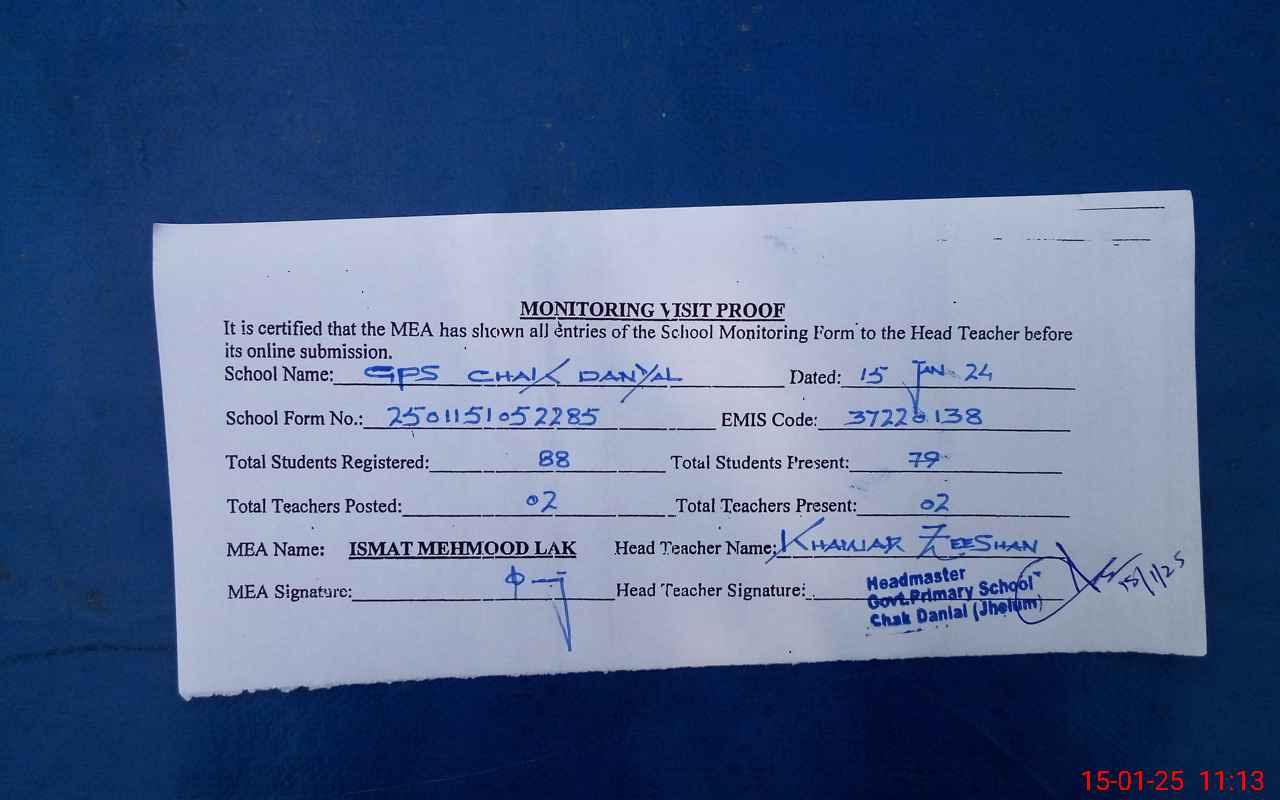 MONITORING VISIT PROOF
It is certified that the MEA has shown all entries of the School Monitoring Form to the Head Teacher before
its online submission.
School Name: GPS CHAK DANYAL Dated: 15 JAN 24
School Form No.: 2501151052285 EMIS Code: 37220138
Total Students Registered: 88 Total Students Present: 79
Total Teachers Posted: 02 Total Teachers Present: 02
MEA Name: ISMAT MEHMOOD LAK Head Teacher Name: KHAWAR ZEESHAN
MEA Signature: Head Teacher Signature:
Headmaster
Govt.Primary School
Chak Danial (Jhelum)
15/1/25
15-01-25 11:13